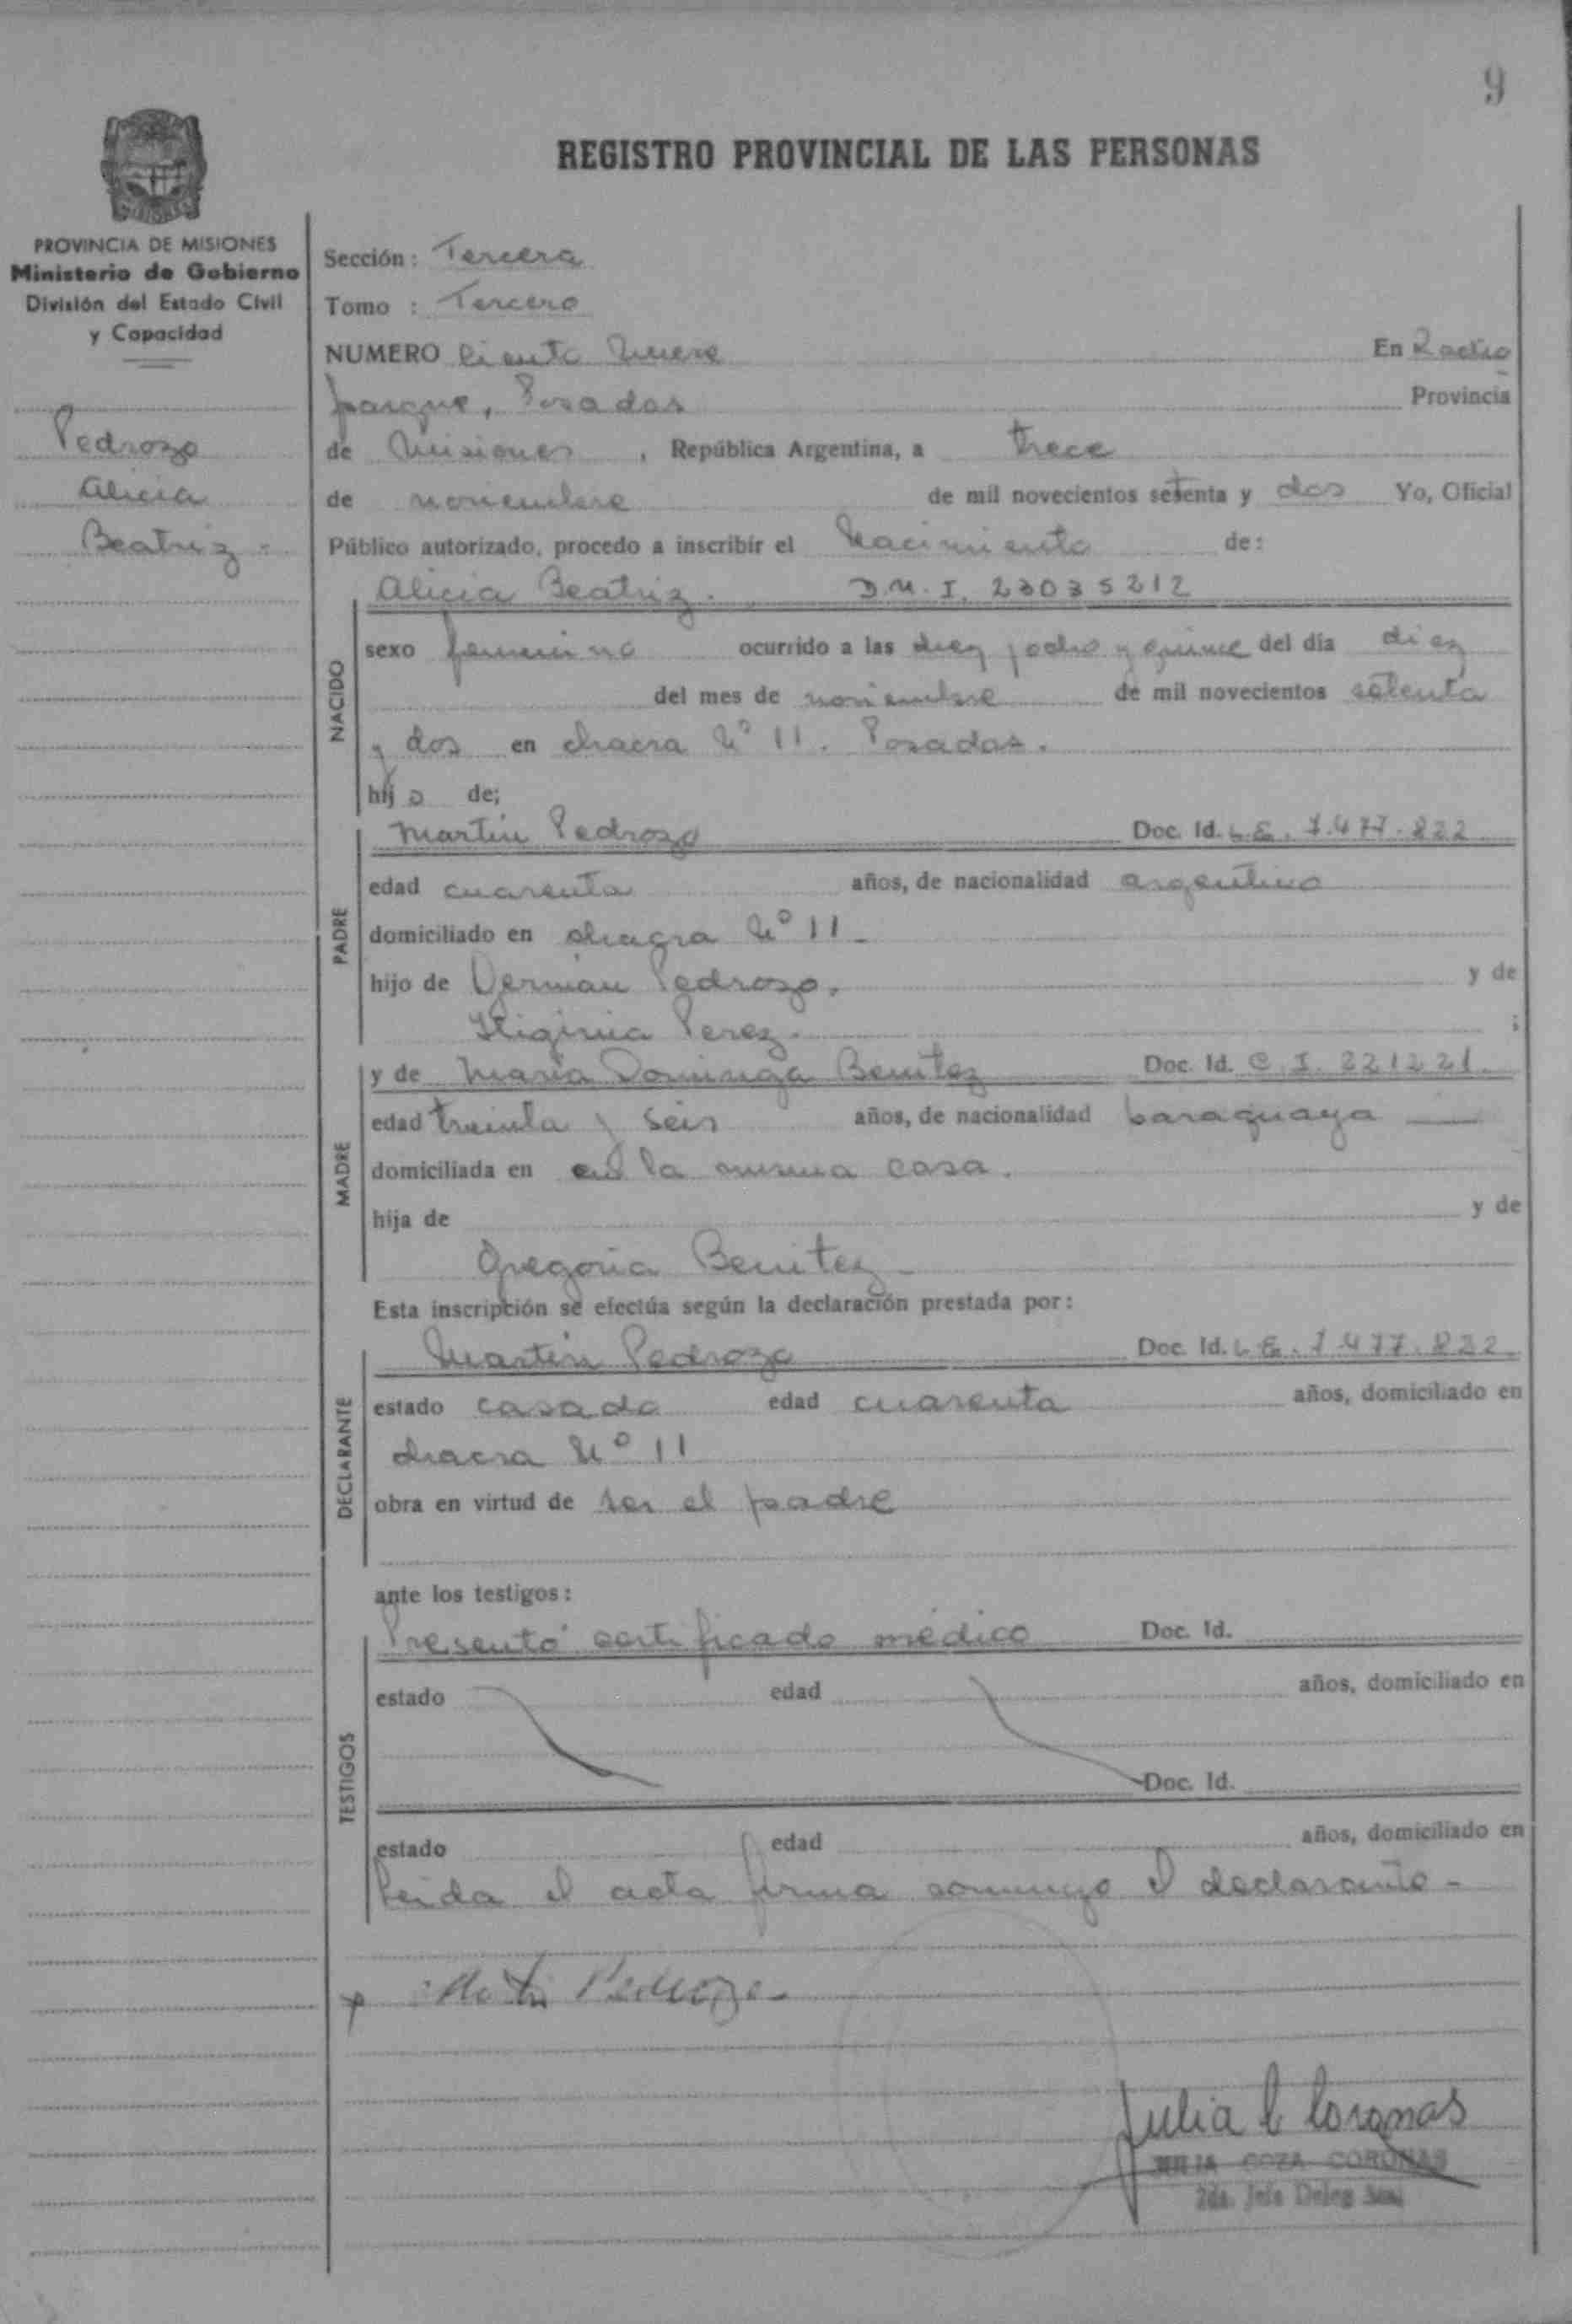 9
REGISTRO PROVINCIAL DE LAS PERSONAS
MISIONES
PROVINCIA DE MISIONES
Ministerio de Gobierno
División del Estado Civil
y Capacidad
Pedrozo
Alicia
Beatriz -
Sección: Tercera
Tomo : Tercero
NUMERO Ciento Nueve En Radio
parque, Posadas Provincia
de Misiones, República Argentina, a trece
de noviembre de mil novecientos setenta y dos Yo, Oficial
Público autorizado, procedo a inscribir el Nacimiento de:
NACIDO
Alicia Beatriz. D.N.I. 23035212
sexo femenino ocurrido a las diez y ocho y quince del día diez
del mes de noviembre de mil novecientos setenta
y dos en chacra Nº 11. Posadas.
hij a de;
PADRE
Martín Pedrozo Doc. Id. L.E. 7.477.822
edad cuarenta años, de nacionalidad argentino
domiciliado en chacra Nº 11-
hijo de Germán Pedrozo, y de
Higinia Perez. ;
MADRE
y de María Dominga Benitez Doc. Id. C.I. 221221.
edad treinta y seis años, de nacionalidad paraguaya —
domiciliada en en la misma casa.
hija de y de
Gregoria Benitez -
Esta inscripción se efectúa según la declaración prestada por:
DECLARANTE
Martín Pedrozo Doc. Id. L.E. 7.477.822
estado casado edad cuarenta años, domiciliado en
chacra Nº 11
obra en virtud de ser el padre
ante los testigos:
TESTIGOS
Presentó certificado médico Doc. Id.
estado edad años, domiciliado en
Doc. Id.
estado edad años, domiciliado en
Leida el acta firma conmigo el declarante -
x Martin Pedrozo
Julia C Coronas
JULIA COZA CORONAS
2da. Jefe Deleg